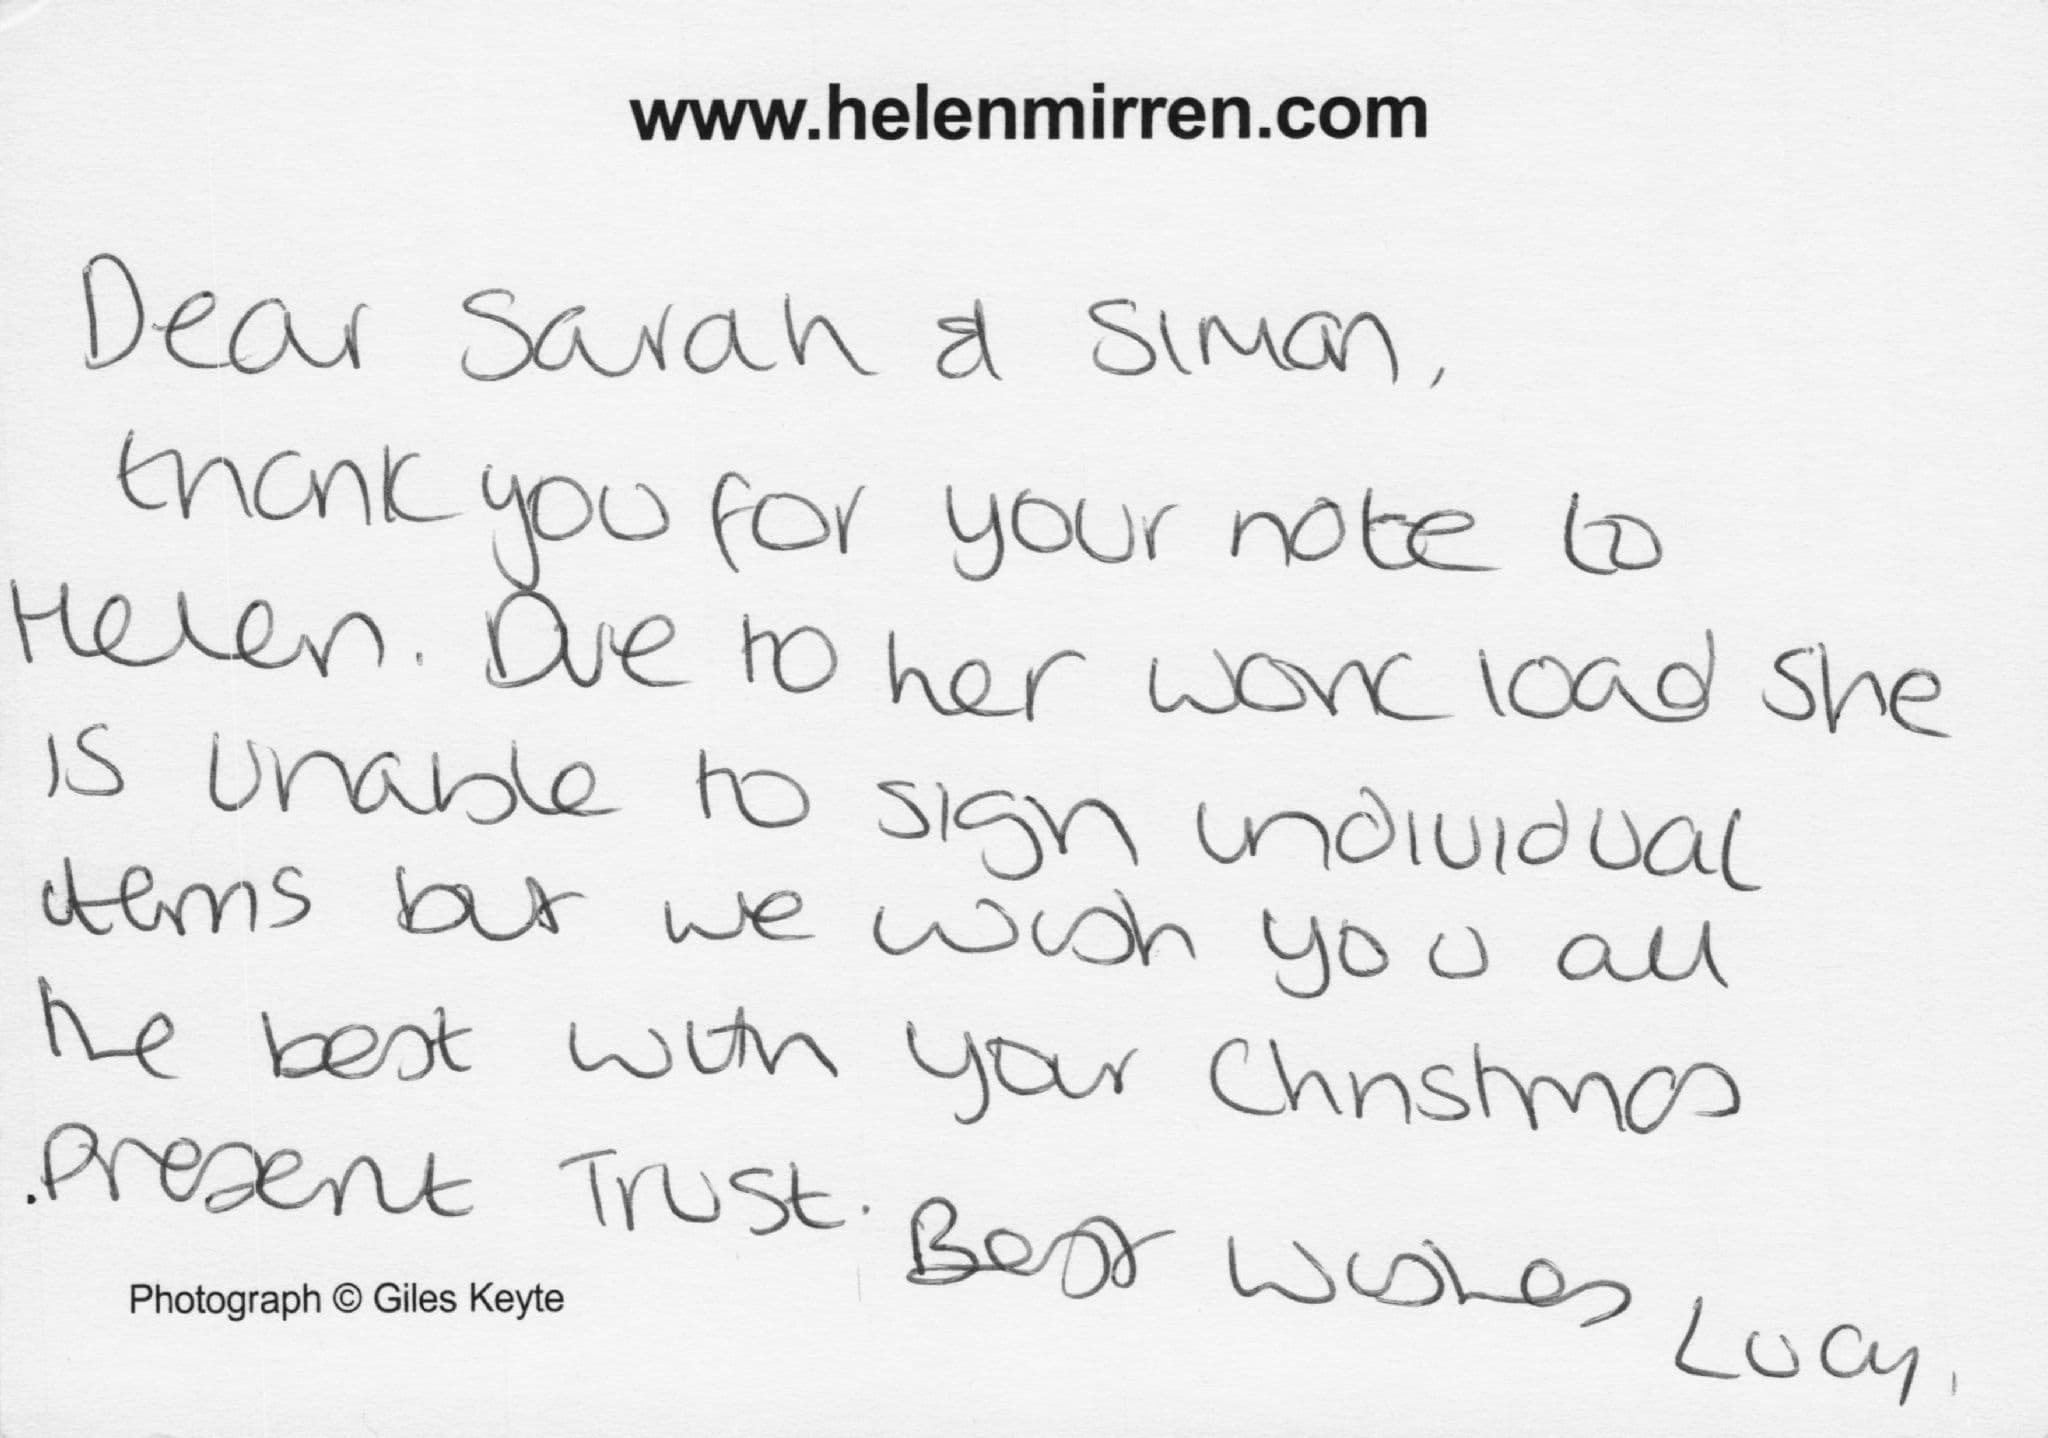 www.helenmirren.com
Dear Sarah & Simon,
thank you for your note to
Helen. Due to her work load she
is unable to sign individual
items but we wish you all
the best with your Christmas
Present Trust. Best wishes
Lucy.
Photograph © Giles Keyte